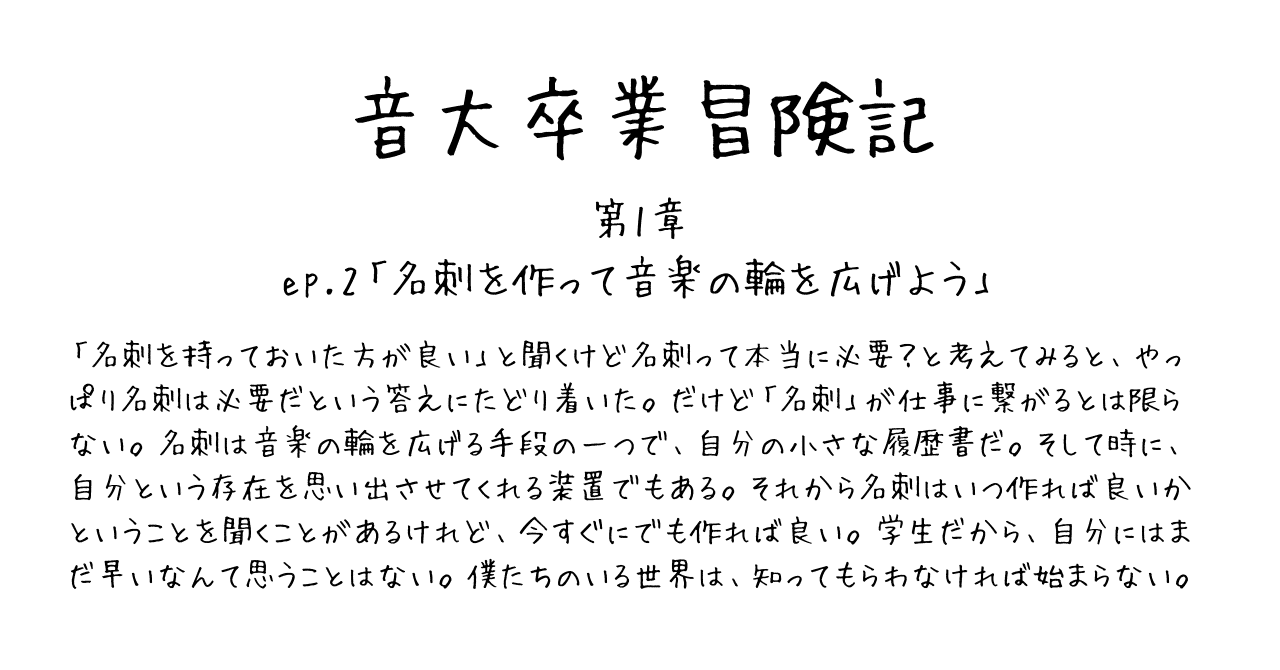 音大卒業冒険記
第1章
ep.2「名刺を作って音楽の輪を広げよう」
「名刺を持っておいた方が良い」と聞くけど名刺って本当に必要？と考えてみると、やっ
ぱり名刺は必要だという答えにたどり着いた。だけど「名刺」が仕事に繋がるとは限ら
ない。名刺は音楽の輪を広げる手段の一つで、自分の小さな履歴書だ。そして時に、
自分という存在を思い出させてくれる装置でもある。それから名刺はいつ作れば良いか
ということを聞くことがあるけれど、今すぐにでも作れば良い。学生だから、自分にはま
だ早いなんて思うことはない。僕たちのいる世界は、知ってもらわなければ始まらない。